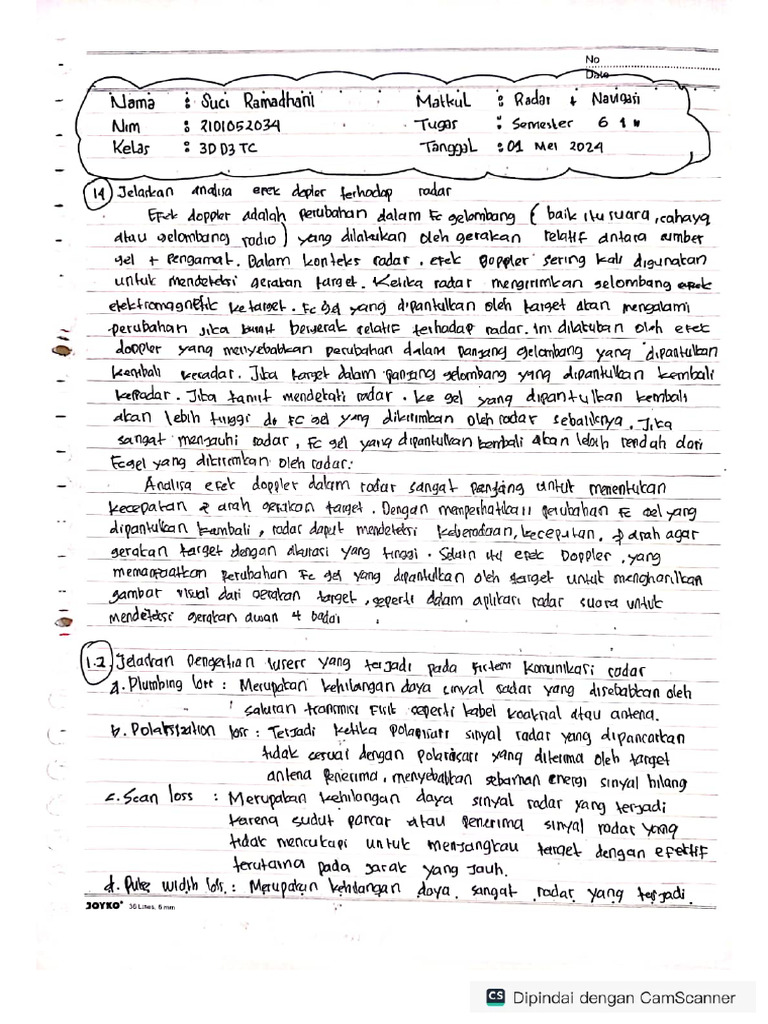 No
Date
Nama : Suci Ramadhani Matkul : Radar + Navigasi
Nim : 2101052034 Tugas : Semester 6
Kelas : 3D D3 TC Tanggal : 01 Mei 2024
Jelaskan analisa efek dopler terhadap radar
Efek doppler adalah perubahan dalam Fc gelombang (baik itu suara, cahaya
atau gelombang radio) yang dilakukan oleh gerakan relatif antara sumber
gel + Pengamat. Dalam konteks radar, efek Doppler sering kali digunakan
untuk mendeteksi gerakan target. Ketika radar mengirimkan gelombang
elektromagnetik ketarget. Fc gel yang dipantulkan oleh target akan mengalami
perubahan jika bergerak relatif terhadap radar. Ini dilakukan oleh efek
doppler yang menyebabkan perubahan dalam panjang gelombang yang dipantulkan
kembali keradar. Jika target dalam panjang gelombang yang dipantulkan kembali
keradar. Jika mendekati radar. gel yang dipantulkan kembali
akan lebih tinggi Fc gel yang dikirimkan oleh radar sebaliknya. Jika
sangat menjauhi radar, Fc gel yang dipantulkan kembali akan lebih rendah dari
Fc gel yang dikirimkan oleh radar.
Analisa efek doppler dalam radar sangat penting untuk menentukan
kecepatan & arah gerakan target. Dengan memperhatikan perubahan Fc gel yang
dipantulkan kembali, radar dapat mendeteksi keberadaan, kecepatan, & arah agar
gerakan target dengan akurasi yang tinggi. Selain itu efek Doppler, yang
memanfaatkan perubahan Fc gel yang dipantulkan oleh target untuk menghasilkan
gambar visual dari gerakan target, seperti dalam aplikasi radar suara untuk
mendeteksi gerakan awan & badai
1.2 Jelaskan Pengertian yang terjadi pada sistem komunikasi radar
a. Plumbing loss : Merupakan kehilangan daya sinyal radar yang disebabkan oleh
saluran transmisi Fisik seperti kabel koaksial atau antena.
b. Polarization loss : Terjadi ketika polarisasi sinyal radar yang dipancarkan
tidak sesuai dengan polarisasi yang diterima oleh target
antena penerima, menyebabkan sebagian energi sinyal hilang
c. Scan loss : Merupakan kehilangan daya sinyal radar yang terjadi
karena sudut pancar atau penerima sinyal radar yang
tidak mencukupi untuk menjangkau target dengan efektif
terutama pada jarak yang jauh.
d. width loss : Merupakan kehilangan daya sangat radar yang terjadi
JOYKO 36 Lines, 6 mm
CS Dipindai dengan CamScanner